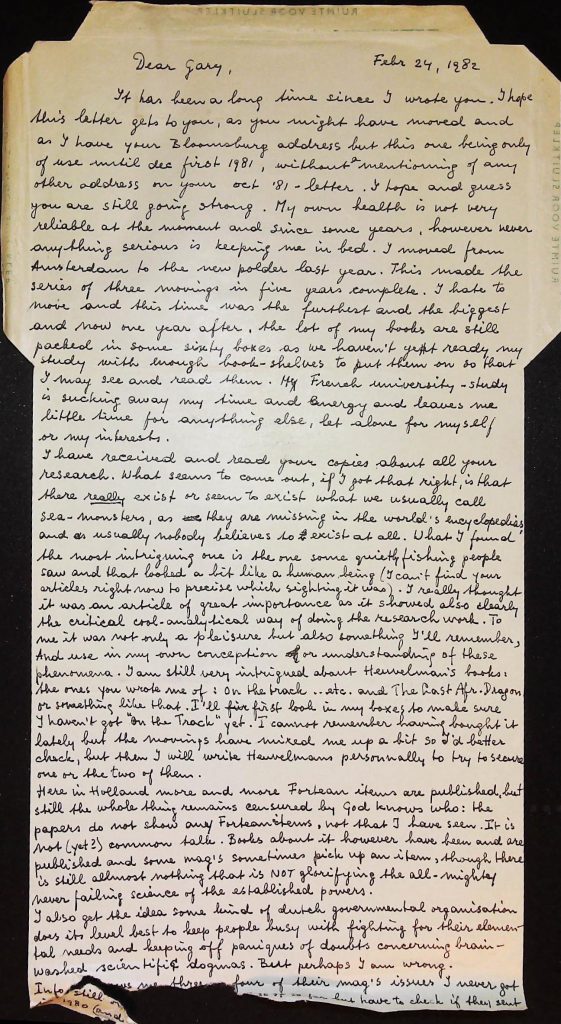 RUIMTE VOOR SLUITKLEP
Dear Gary, Febr 24, 1982
It has been a long time since I wrote you. I hope
this letter gets to you, as you might have moved and
as I have your Bloomsburg address but this one being only
of use until dec first 1981, without mentioning of any
other address on your oct '81-letter. I hope and guess
you are still going strong. My own health is not very
reliable at the moment and since some years, however never
anything serious is keeping me in bed. I moved from
Amsterdam to the new polder last year. This made the
series of three movings in five years complete. I hate to
move and this time was the furthest and the biggest
and now one year after, the lot of my books are still
packed in some sixty boxes as we haven't yet ready my
study with enough book-shelves to put them on so that
I may see and read them. My French university-study
is sucking away my time and energy and leaves me
little time for anything else, let alone for myself
or my interests.
I have received and read your copies about all your
research. What seems to come out, if I got that right, is that
there really exist or seem to exist what we usually call
sea-monsters, as they are missing in the world's encyclopedias
and as usually nobody believes to exist at all. What I found
the most intriguing one is the one some quietly fishing people
saw and that looked a bit like a human being (I can't find your
articles right now to precise which sighting it was). I really thought
it was an article of great importance as it showed also clearly
the critical cool-analytical way of doing the research work. To
me it was not only a pleisure but also something I'll remember,
And use in my own conception or understanding of these
phenomena. I am still very intrigued about Heuvelman's books:
the ones you wrote me of: On the track ..etc. and The Last Afr. Dragon,
or something like that. I'll first look in my boxes to make sure
I haven't got "On the Track" yet. I cannot remember having bought it
lately but the movings have mixed me up a bit so I'd better
check, but then I will write Heuvelmans personnally to try to secure
one or the two of them.
Here in Holland more and more Fortean items are published, but
still the whole thing remains censured by God knows who: the
papers do not show any Fortean items, not that I have seen. It is
not (yet?) common talk. Books about it however have been and are
published and some mag's sometimes pick up an item, though there
is still allmost nothing that is NOT glorifying the all-mighty
never failing science of the established powers.
I also get the idea some kind of dutch governmental organisation
does its level best to keep people busy with fighting for their elemen-
tal needs and keeping off paniques of doubts concerning brain-
washed scientific dogmas. But perhaps I am wrong.
Info still me three four of their mag's issues I never got
1980 (and but have to check if they sent
RUIMTE VOOR SLUITKLEP